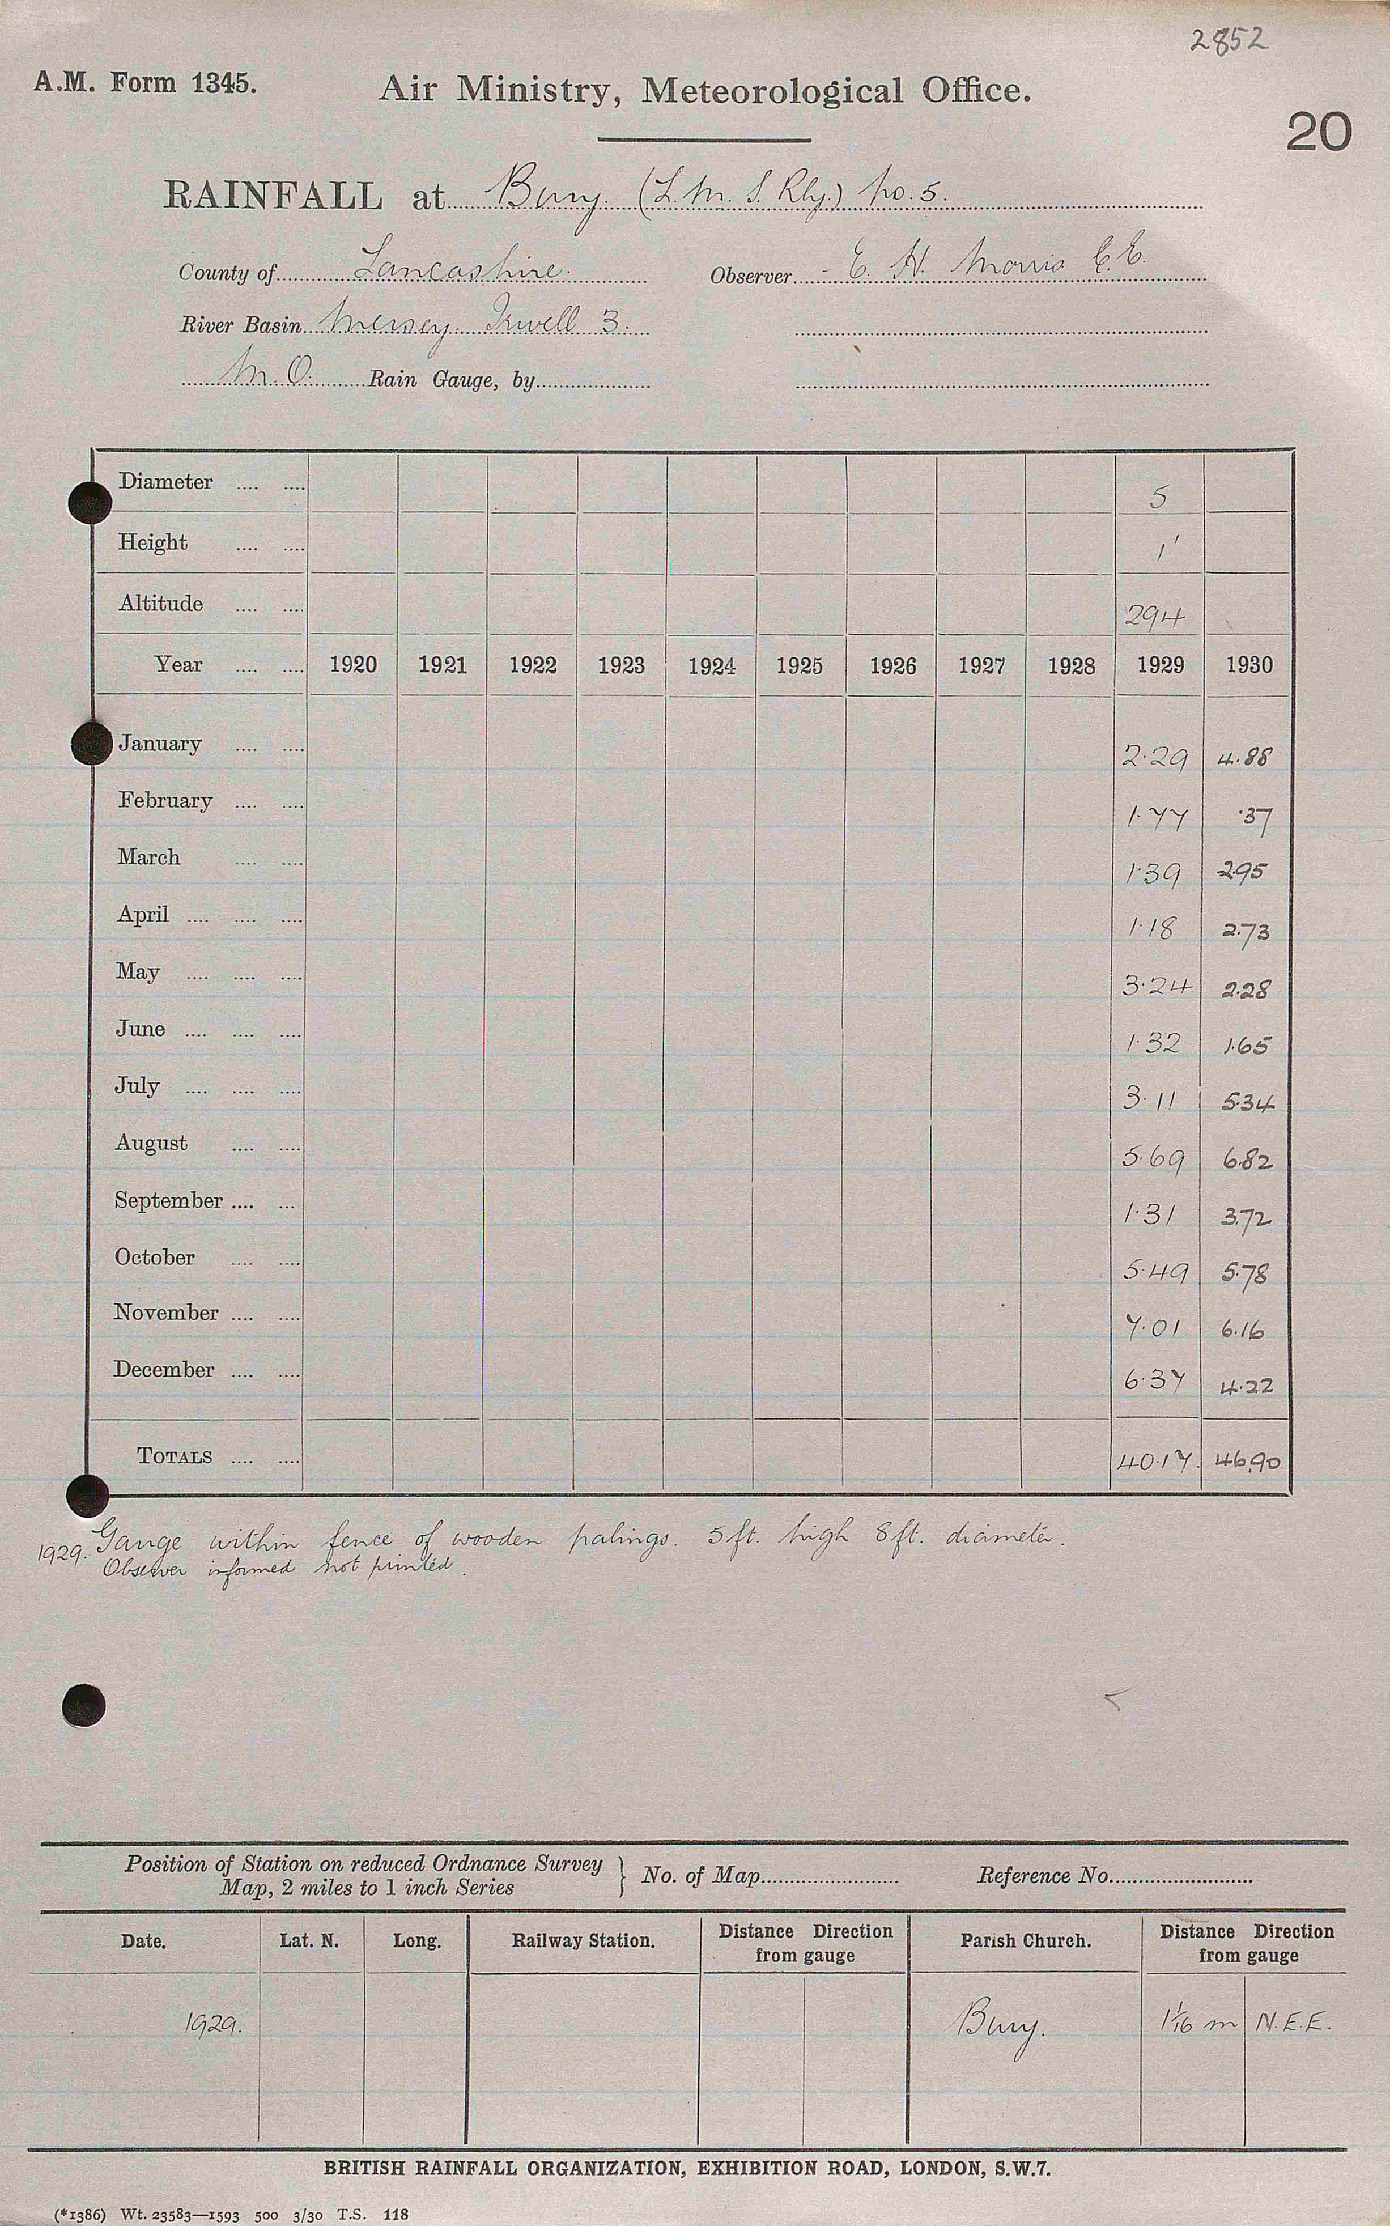 2852
A.M. Form 1345. Air Ministry, Meteorological Office.
20
RAINFALL at Bury. (L.M.S. Rly.) No. 5.
County of Lancashire. Observer - E. H. Morris C.E.
River Basin Mersey. Irwell 3.
M.O. Rain Gauge, by
Diameter .... .... 5
Height .... .... 1'
Altitude .... .... 294
Year .... .... 1920 1921 1922 1923 1924 1925 1926 1927 1928 1929 1930
January .... .... 2.29 4.88
February .... .... 1.77 .37
March .... .... 1.39 2.95
April .... .... .... 1.18 2.73
May .... .... .... 3.24 2.28
June .... .... .... 1.32 1.65
July .... .... .... 3.11 5.34
August .... .... 5.69 6.82
September .... ... 1.31 3.72
October .... .... 5.49 5.78
November .... .... 7.01 6.16
December .... .... 6.37 4.22
TOTALS .... .... 40.17 46.90
1929. Gauge within fence of wooden palings. 5ft. high 8ft. diameter.
Observer informed not printed.
Position of Station on reduced Ordnance Survey Map, 2 miles to 1 inch Series } No. of Map Reference No.
Date. Lat. N. Long. Railway Station. Distance Direction from gauge Parish Church. Distance Direction from gauge
1929. Bury. 1 1/16 m N.E.E.
BRITISH RAINFALL ORGANIZATION, EXHIBITION ROAD, LONDON, S.W.7.
(*1386) Wt. 23583—1593 500 3/30 T.S. 118